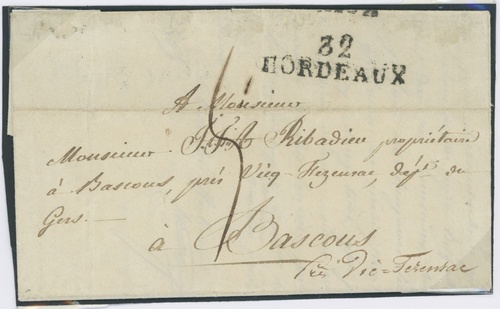 32
BORDEAUX
A Monsieur
Monsieur Ribadieu propriétaire
à Bascous, près Vicq-Fezensac, dép.t du
Gers.
à Bascous
Près Vic=Fezensac